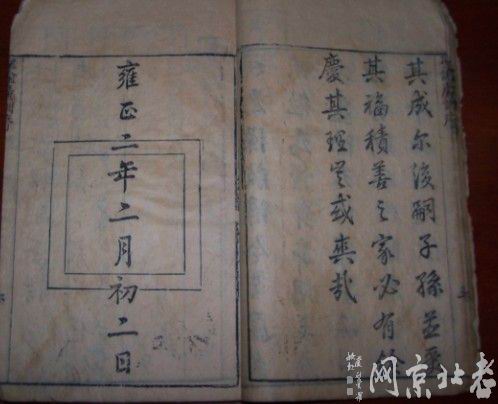 其成尔後嗣子孫並受
其福積善之家必有
慶其理豈或爽哉
雍正二年二月初二日
老北京网